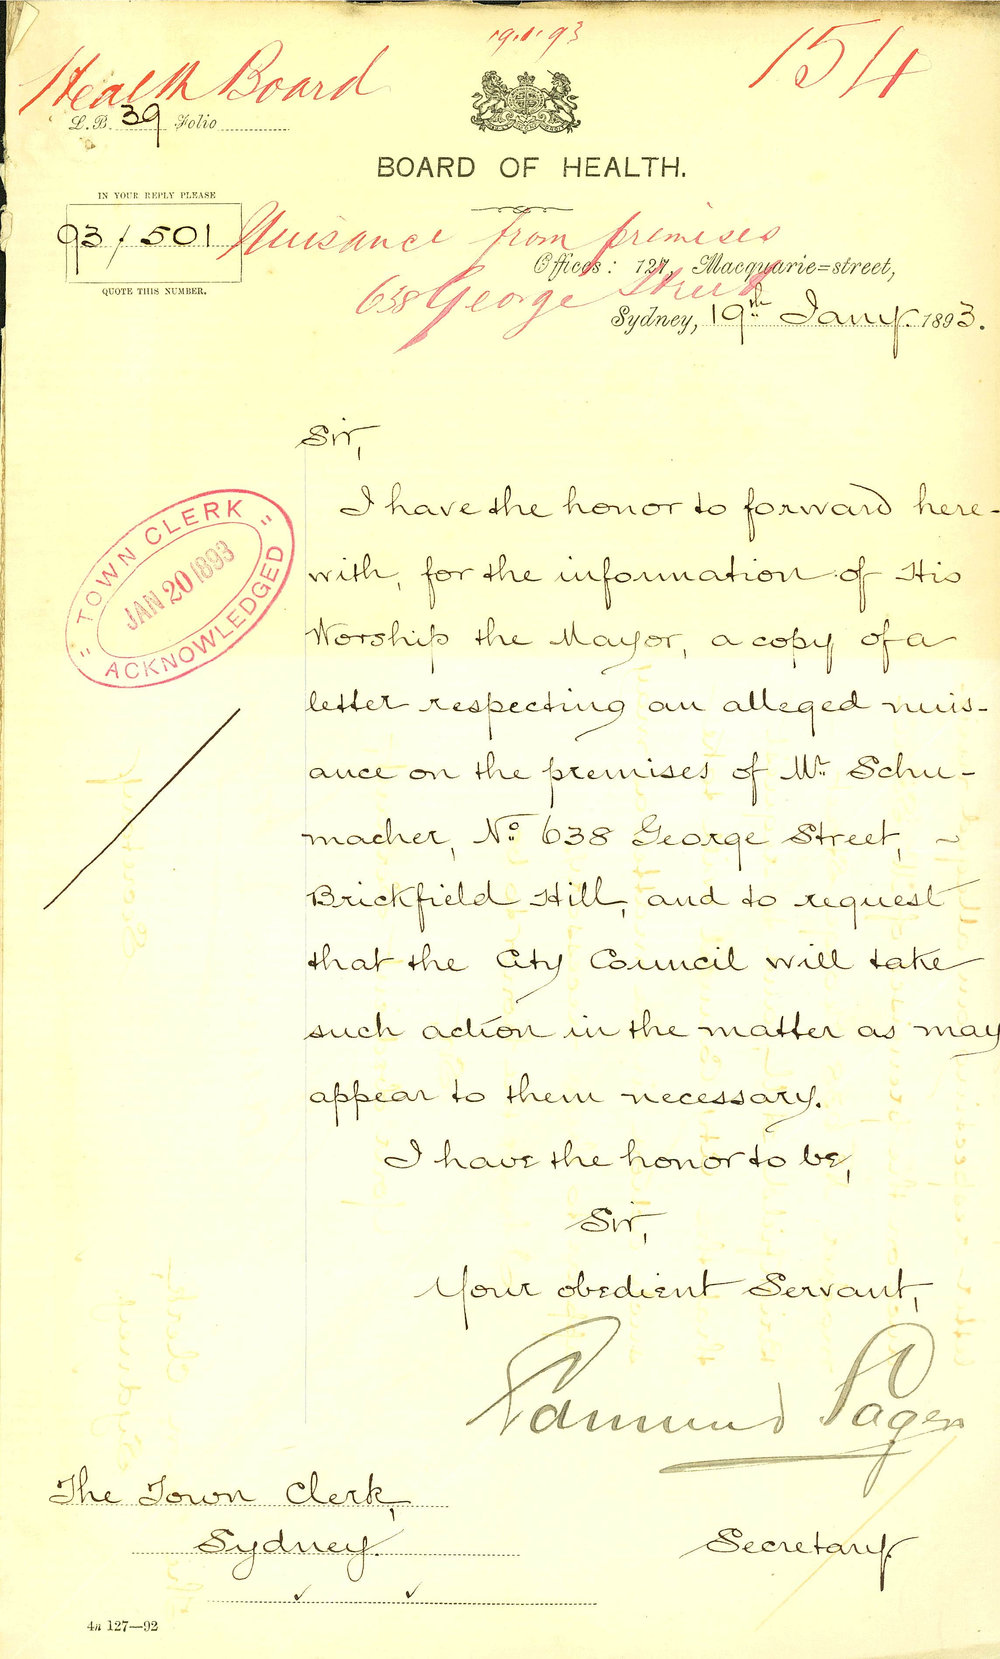 19.1.93
154
Health Board
L.B. 39 Folio
BOARD OF HEALTH.
IN YOUR REPLY PLEASE
93/501
QUOTE THIS NUMBER.
Nuisance from premises
638 George Street
Offices: 127, Macquarie=street,
Sydney, 19th Jany. 1893.
Sir,
I have the honor to forward here-
with, for the information of His
Worship the Mayor, a copy of a
letter respecting an alleged nuis-
ance on the premises of Mr. Schu-
macher, No. 638 George Street, ~
Brickfield Hill, and to request
that the City Council will take
such action in the matter as may
appear to them necessary.
I have the honor to be,
Sir,
Your obedient Servant,
Edmund Sager
Secretary.
"TOWN CLERK"
JAN 20 1893
ACKNOWLEDGED
The Town Clerk,
Sydney.
4a 127—92